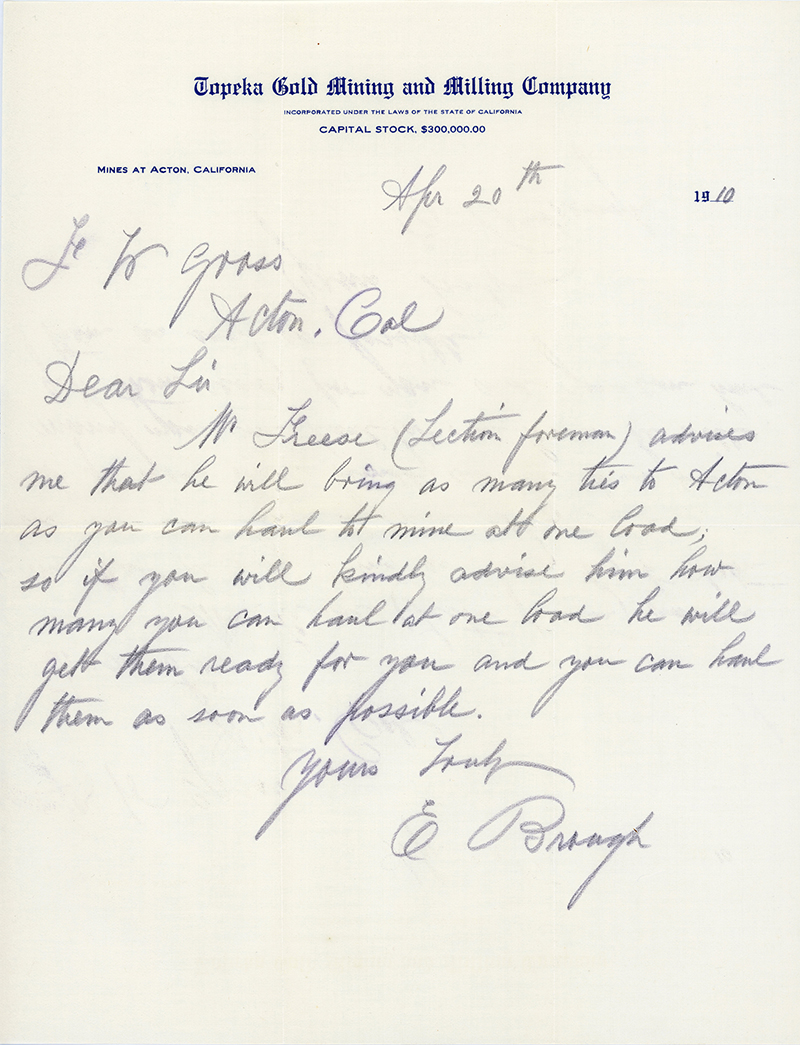 Topeka Gold Mining and Milling Company
INCORPORATED UNDER THE LAWS OF THE STATE OF CALIFORNIA
CAPITAL STOCK, $300,000.00
MINES AT ACTON, CALIFORNIA
Apr 20th 1910
W Gooss
Acton, Cal
Dear Sir
Mr Freese (Section foreman) advises
me that he will bring as many ties to Acton
as you can haul to mine att one load;
so if you will kindly advise him how
many you can haul at one load he will
gett them ready for you and you can haul
them as soon as possible.
Yours Truly
E Brough